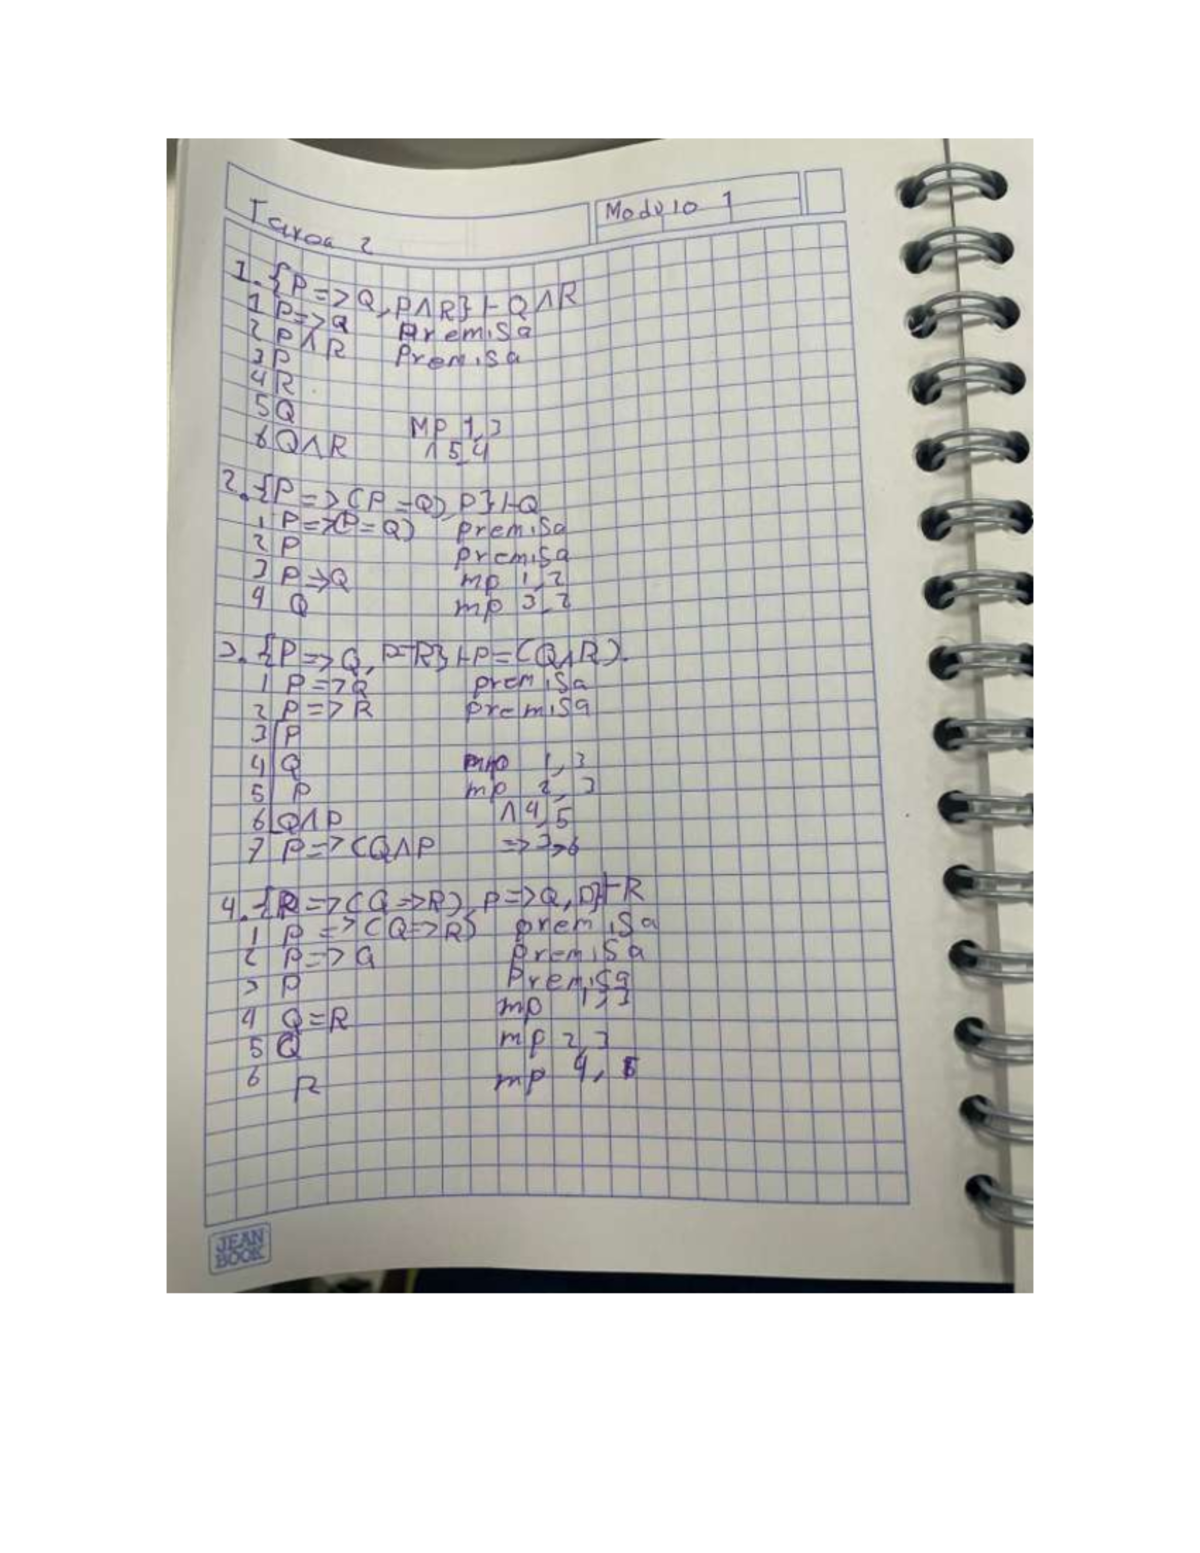 Tarea 2
Modulo 1
1. {P => Q, P∧R} ⊢ Q∧R
1 P => Q Premisa
2 P∧R Premisa
3 P
4 R
5 Q MP 1,3
6 Q∧R ∧ 5,4
2. {P => (P = Q), P} ⊢ Q
1 P => (P = Q) premisa
2 P premisa
3 P => Q mp 1,2
4 Q mp 3,2
3. {P => Q, P=R} ⊢ P = (Q∧R).
1 P => Q premisa
2 P => R premisa
3 P
4 Q mp 1,3
5 P mp 2,3
6 Q∧P ∧ 4,5
7 P => (Q∧P => 3,6
4. {R => (Q => R), P => Q, P} ⊢ R
1 P => (Q => R} premisa
2 P => Q premisa
3 P Premisa
4 Q = R mp 1,3
5 Q mp 2,3
6 R mp 4,5
JEAN
BOOK